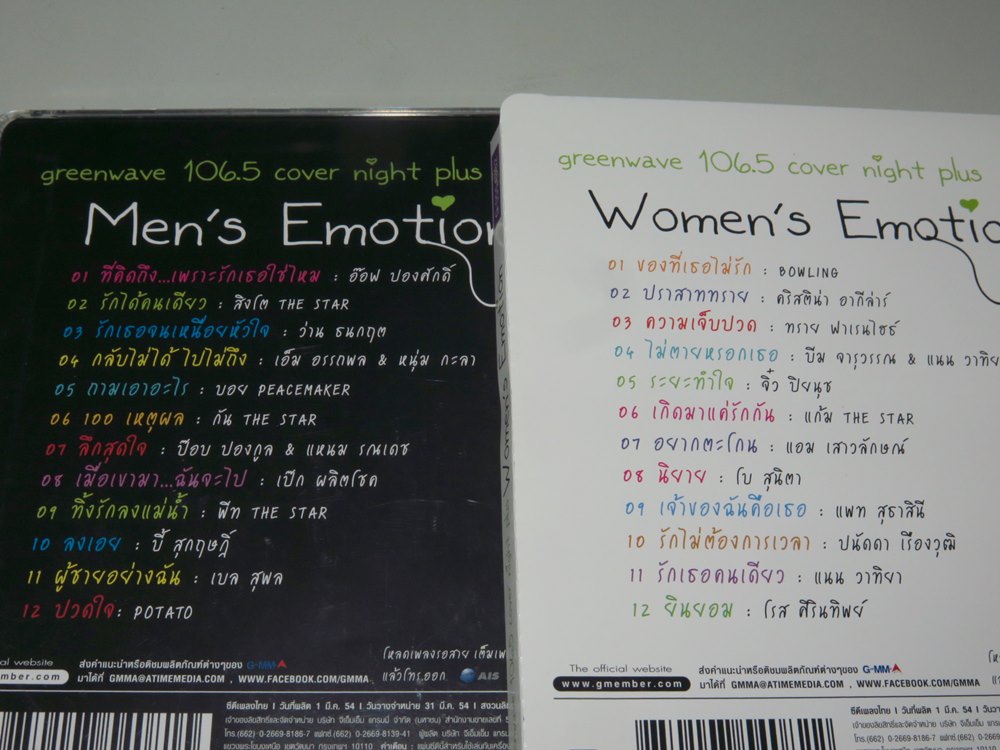 greenwave 106.5 cover night plus
Men's Emotion
01 ที่คิดถึง...เพราะรักเธอใช่ไหม : อ๊อฟ ปองศักดิ์
02 รักได้คนเดียว : สิงโต THE STAR
03 รักเธอจนเหนื่อยหัวใจ : ว่าน ธนกฤต
04 กลับไม่ได้ ไปไม่ถึง : เอ็ม อรรถพล & หนุ่ม กะลา
05 ถามเอาอะไร : บอย PEACEMAKER
06 100 เหตุผล : กัน THE STAR
07 ลึกสุดใจ : ป๊อบ ปองกูล & แหนม รณเดช
08 เมื่อเขามา...ฉันจะไป : เป๊ก ผลิตโชค
09 ทิ้งรักลงแม่น้ำ : พีท THE STAR
10 ลงเอย : บี้ สุกฤษฎิ์
11 ผู้ชายอย่างฉัน : เบล สุพล
12 ปวดใจ : POTATO
โหลดเพลงรอสาย เต็มเพ
al website
mber.com
ส่งคำแนะนำหรือติชมผลิตภัณฑ์ต่างๆของ G-MM
มาได้ที่ GMMA@ATIMEMEDIA.COM , WWW.FACEBOOK.COM/GMMA
แล้วโทรออก AIS
ซีดีเพลงไทย | วันที่ผลิต 1 มี.ค. 54 | วันวางจำหน่าย 31 มี.ค. 54 | สงวนลิ
Women's Emotion
greenwave 106.5 cover night plus
Women's Emotio
01 ของที่เธอไม่รัก : BOWLING
02 ปราสาททราย : คริสติน่า อากีล่าร์
03 ความเจ็บปวด : ทราย ฟาเรนไฮธ์
04 ไม่ตายหรอกเธอ : บีม จารุวรรณ & แนน วาทิย
05 ระยะทำใจ : จิ๋ว ปิยนุช
06 เกิดมาแค่รักกัน : แก้ม THE STAR
07 อยากตะโกน : แอม เสาวลักษณ์
08 นิยาย : โบ สุนิตา
09 เจ้าของฉันคือเธอ : แพท สุธาสินี
10 รักไม่ต้องการเวลา : ปนัดดา เรืองวุฒิ
11 รักเธอคนเดียว : แนน วาทิยา
12 ยินยอม : โรส ศิรินทิพย์
The official website
www.gmember.com
ส่งคำแนะนำหรือติชมผลิตภัณฑ์ต่างๆของ G-MM
มาได้ที่ GMMA@ATIMEMEDIA.COM , WWW.FACEBOOK.COM/GMMA
ซีดีเพลงไทย | วันที่ผลิต 1 มี.ค. 54 | วันวา